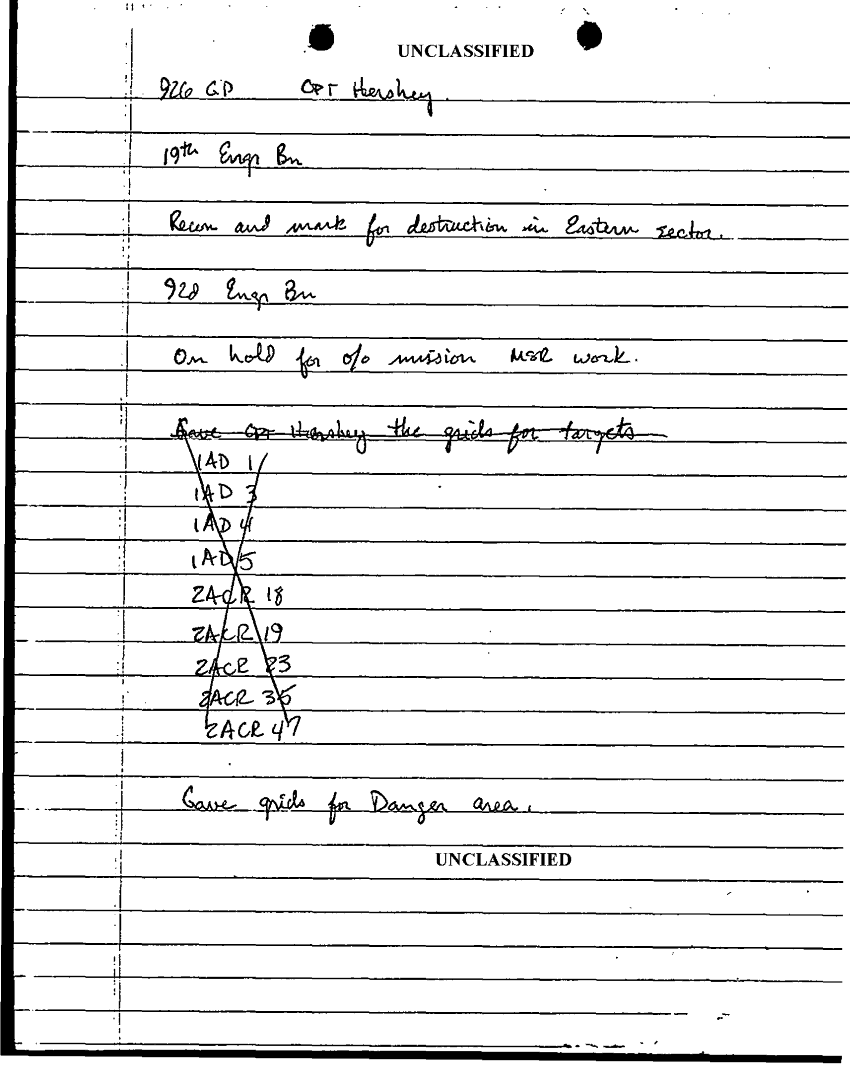 UNCLASSIFIED
926 GP CPT Hershey.
19th Engr Bn
Recon and mark for destruction in Eastern sector.
92d Engr Bn
On hold for o/o mission MSR work.
Gave CPT Hershey the grids for targets
1AD 1
1AD 3
1AD 4
1AD 5
2ACR 18
2ACR 19
2ACR 23
2ACR 35
2ACR 47
Gave grids for Danger area.
UNCLASSIFIED